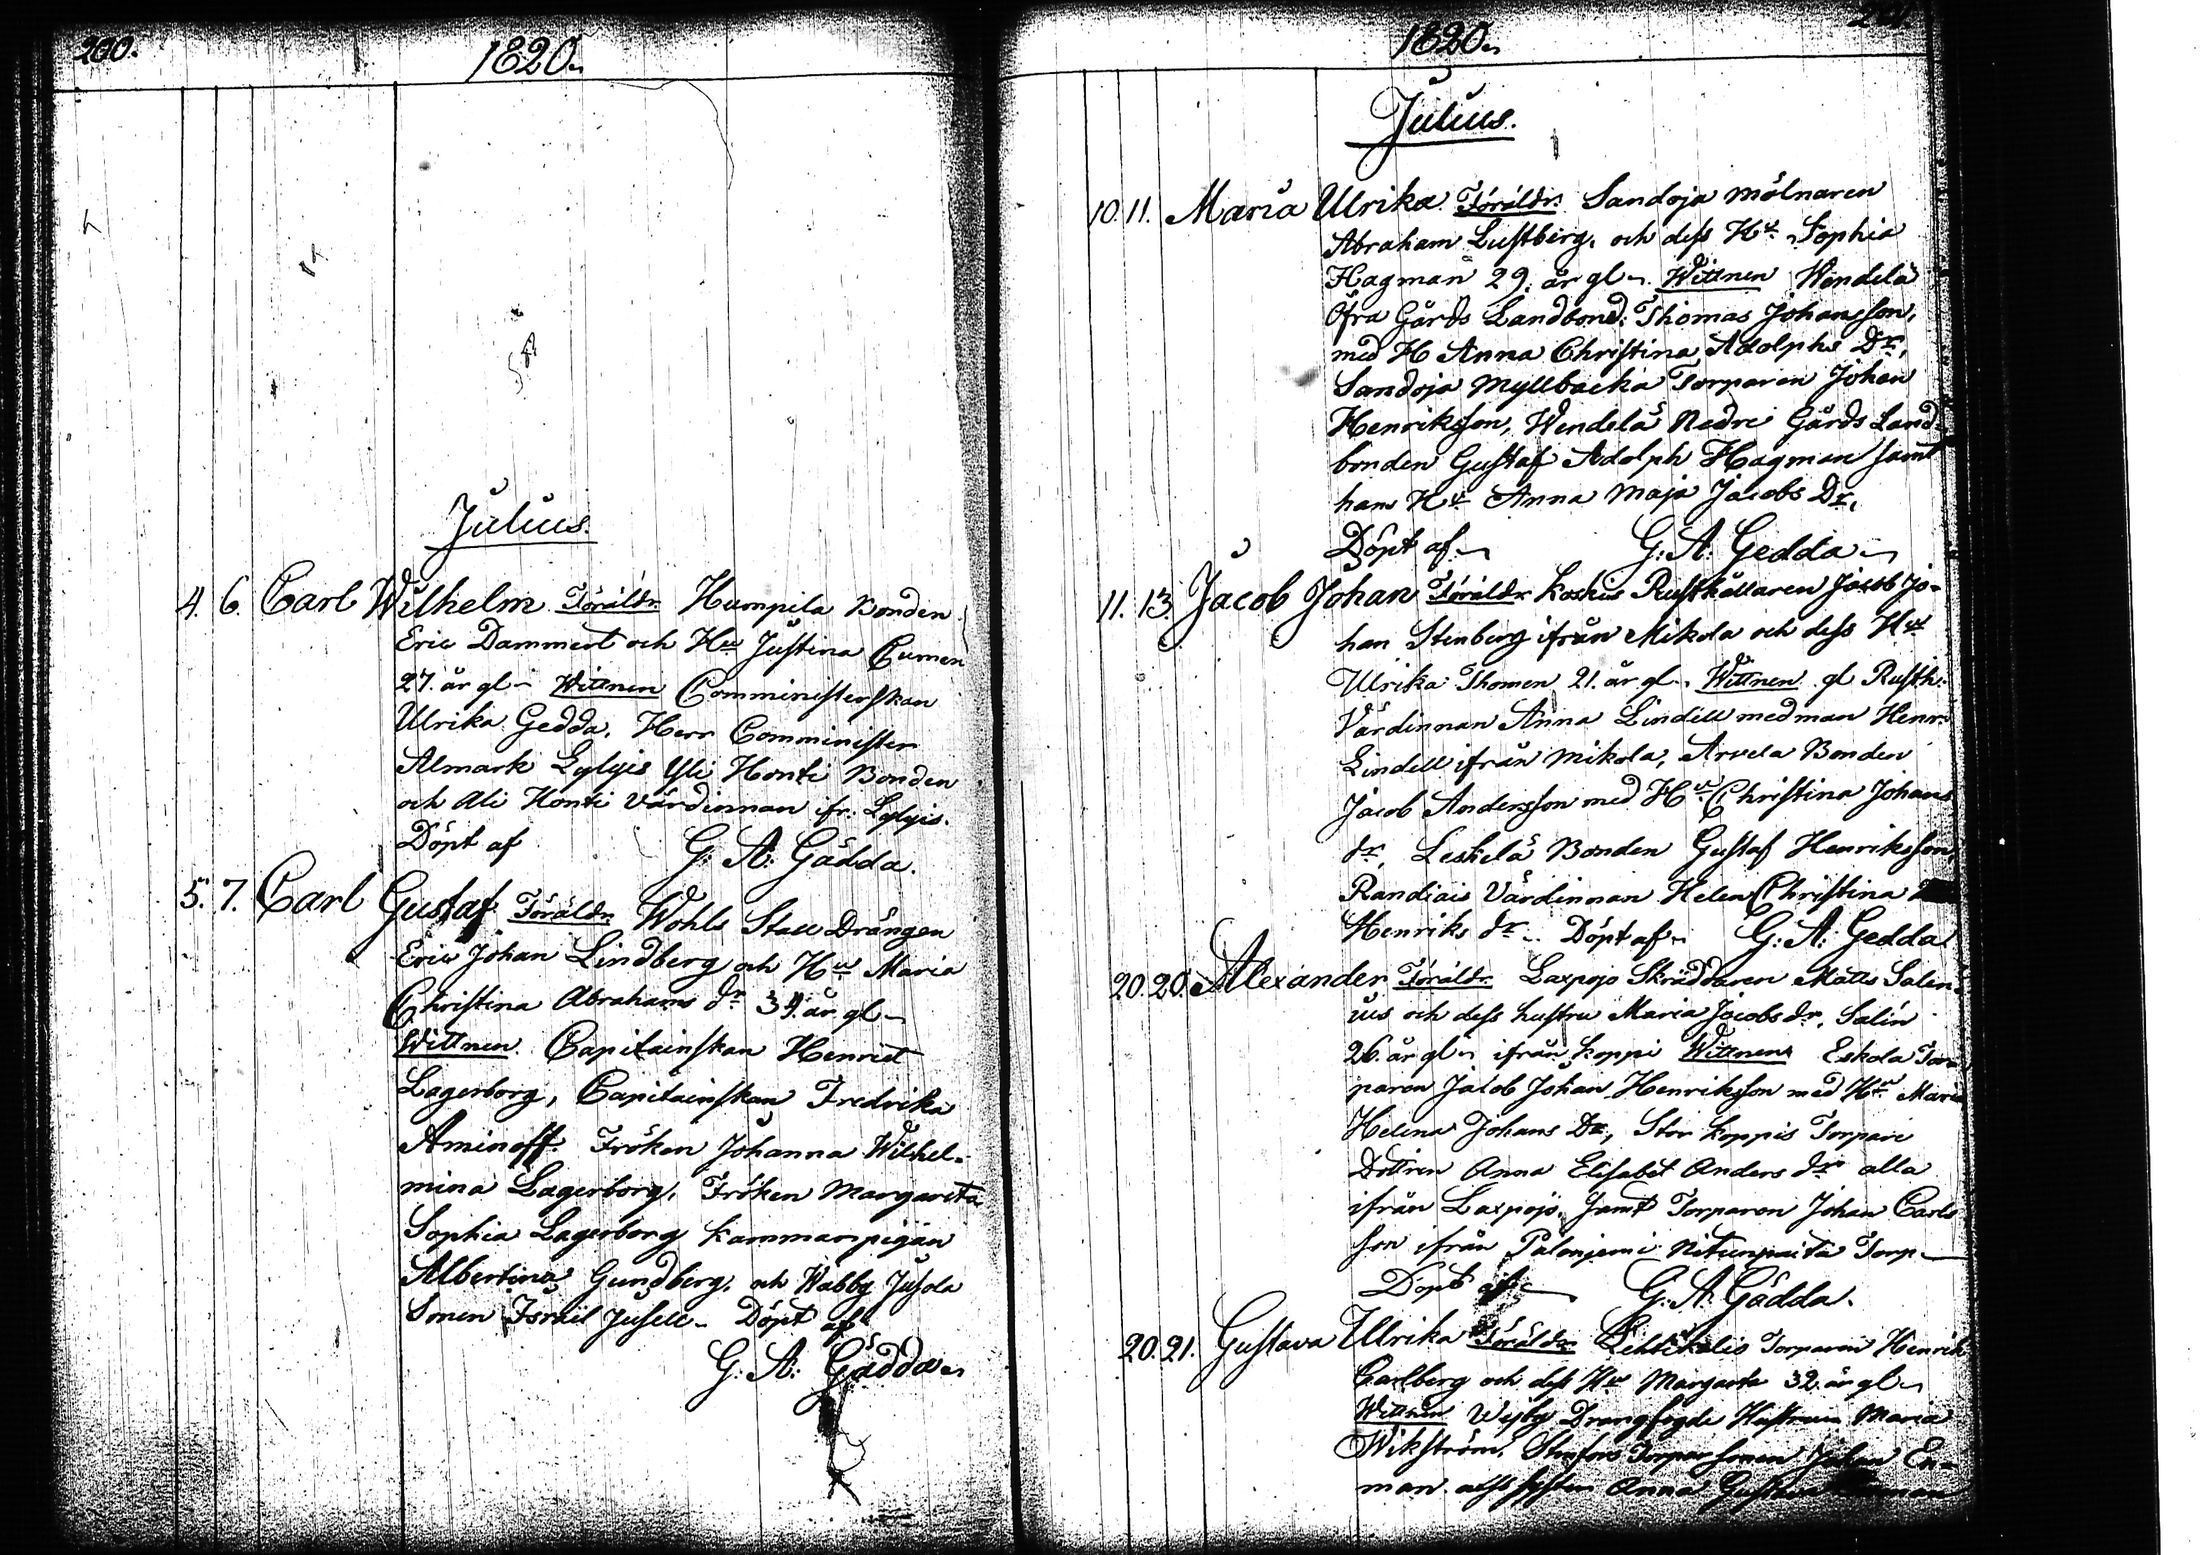 200.
1820.
Julius.
4. 6. Carl Wilhelm Föräldr. Humpila Bonden
Eric Dammert och Hu Justina Cumen
27. år gl- Wittnen Comministerskan
Ulrika Gedda, Herr Comminister
Almark Lylyis Yli Honti Bonden
och Ali Honti Värdinnan ifr. Lylyis.
Döpt af G: A: Gädda.
5. 7. Carl Gustaf Föräldr. Wohls Stall Drängen
Eric Johan Lindberg och Hu Maria
Christina Abrahams dr 34. år gl-
Wittnen Capitainskan Henriet
Lagerborg, Capitainskan Fredrika
Aminoff. Fröken Johanna Wilhel-
mina Lagerborg, Fröken Margareta
Sophia Lagerborg Kammarpigan
Albertina Gundberg, och Wabby Jusola
Sonen Israel Jusell- Döpt af
G: A: Gädda
1820.
Julius.
10. 11. Maria Ulrika Föräldr. Sandoja Mölnaren
Abraham Lustberg, och dess Hu Sophia
Hagman 29. år gl- Wittnen Wendelä
Öfra Gårds Landbond: Thomas Johansson,
med H Anna Christina Adolphs Dr,
Sandoja Myllbacka Torparen Johan
Henriksson, Wendelä Nedre Gårds Land-
bonden Gustaf Adolph Hagman samt
hans Hu Anna Maja Jacobs Dr,
Döpt af G: A: Gedda
11. 13. Jacob Johan Föräldr. Koskis Rusthållaren Jacob Jo-
han Stenberg ifrån Mikola och dess Hu
Ulrika Thomen 21. år gl- Wittnen gl Rusth:
Värdinnan Anna Lindell med man Henr:
Lindell ifrån Mikola, Arvela Bonden
Jacob Andersson med Hu Christina Johans
dr, Leskelä Bonden Gustaf Henriksson,
Randiais Värdinnan Helen Christina
Henriks dr- Döpt af G: A: Gedda
20. 20. Alexander Föräldr. Laxpojo Skräddaren Matts Salen-
ius och dess hustru Maria Jacobs dr, Salin
26. år gl- ifrån Koppi Wittnen Eskola Tor-
paren Jacob Johan Henriksson med Hu Maria
Helena Johans Dr, Stor Koppis Torpare
Dottren Anna Elisabet Anders dr alla
ifrån Laxpojo, Jamt Torparen Johan Carls
son ifrån Palonjemi Torp
Döpt af G: A: Gädda.
20. 21. Gustava Ulrika Föräldr. Torparen Henrik
Carlberg och dess Hu Margareta 32. år gl-
Wittnen Wejby Drängfogde Hustrun Maria
Wikström, Torpar sonen Johan En-
man Anna